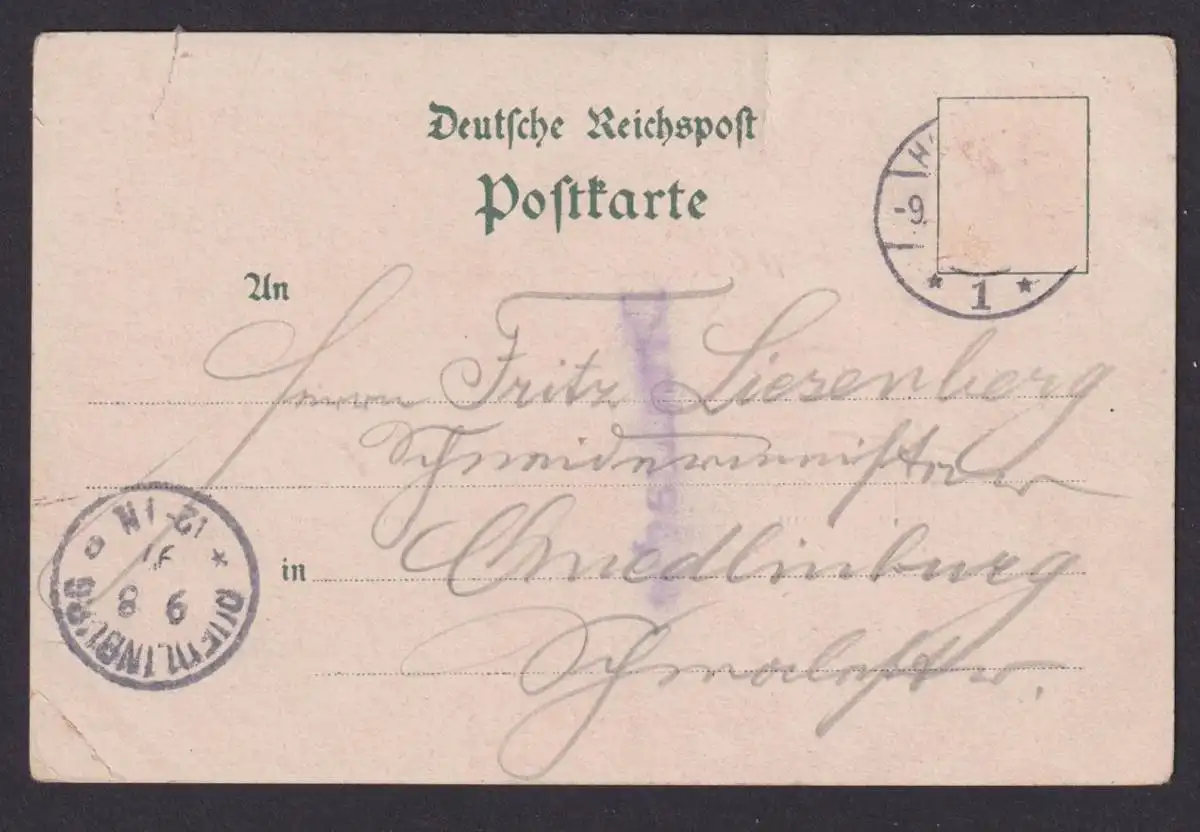 Deutsche Reichspost
Postkarte
-9.
* 1 *
An
Herrn Fritz Liesenberg
Schneidermeister
in Quedlinburg
Schmalestr.
* QUEDLINBURG *
9 8
12-1N